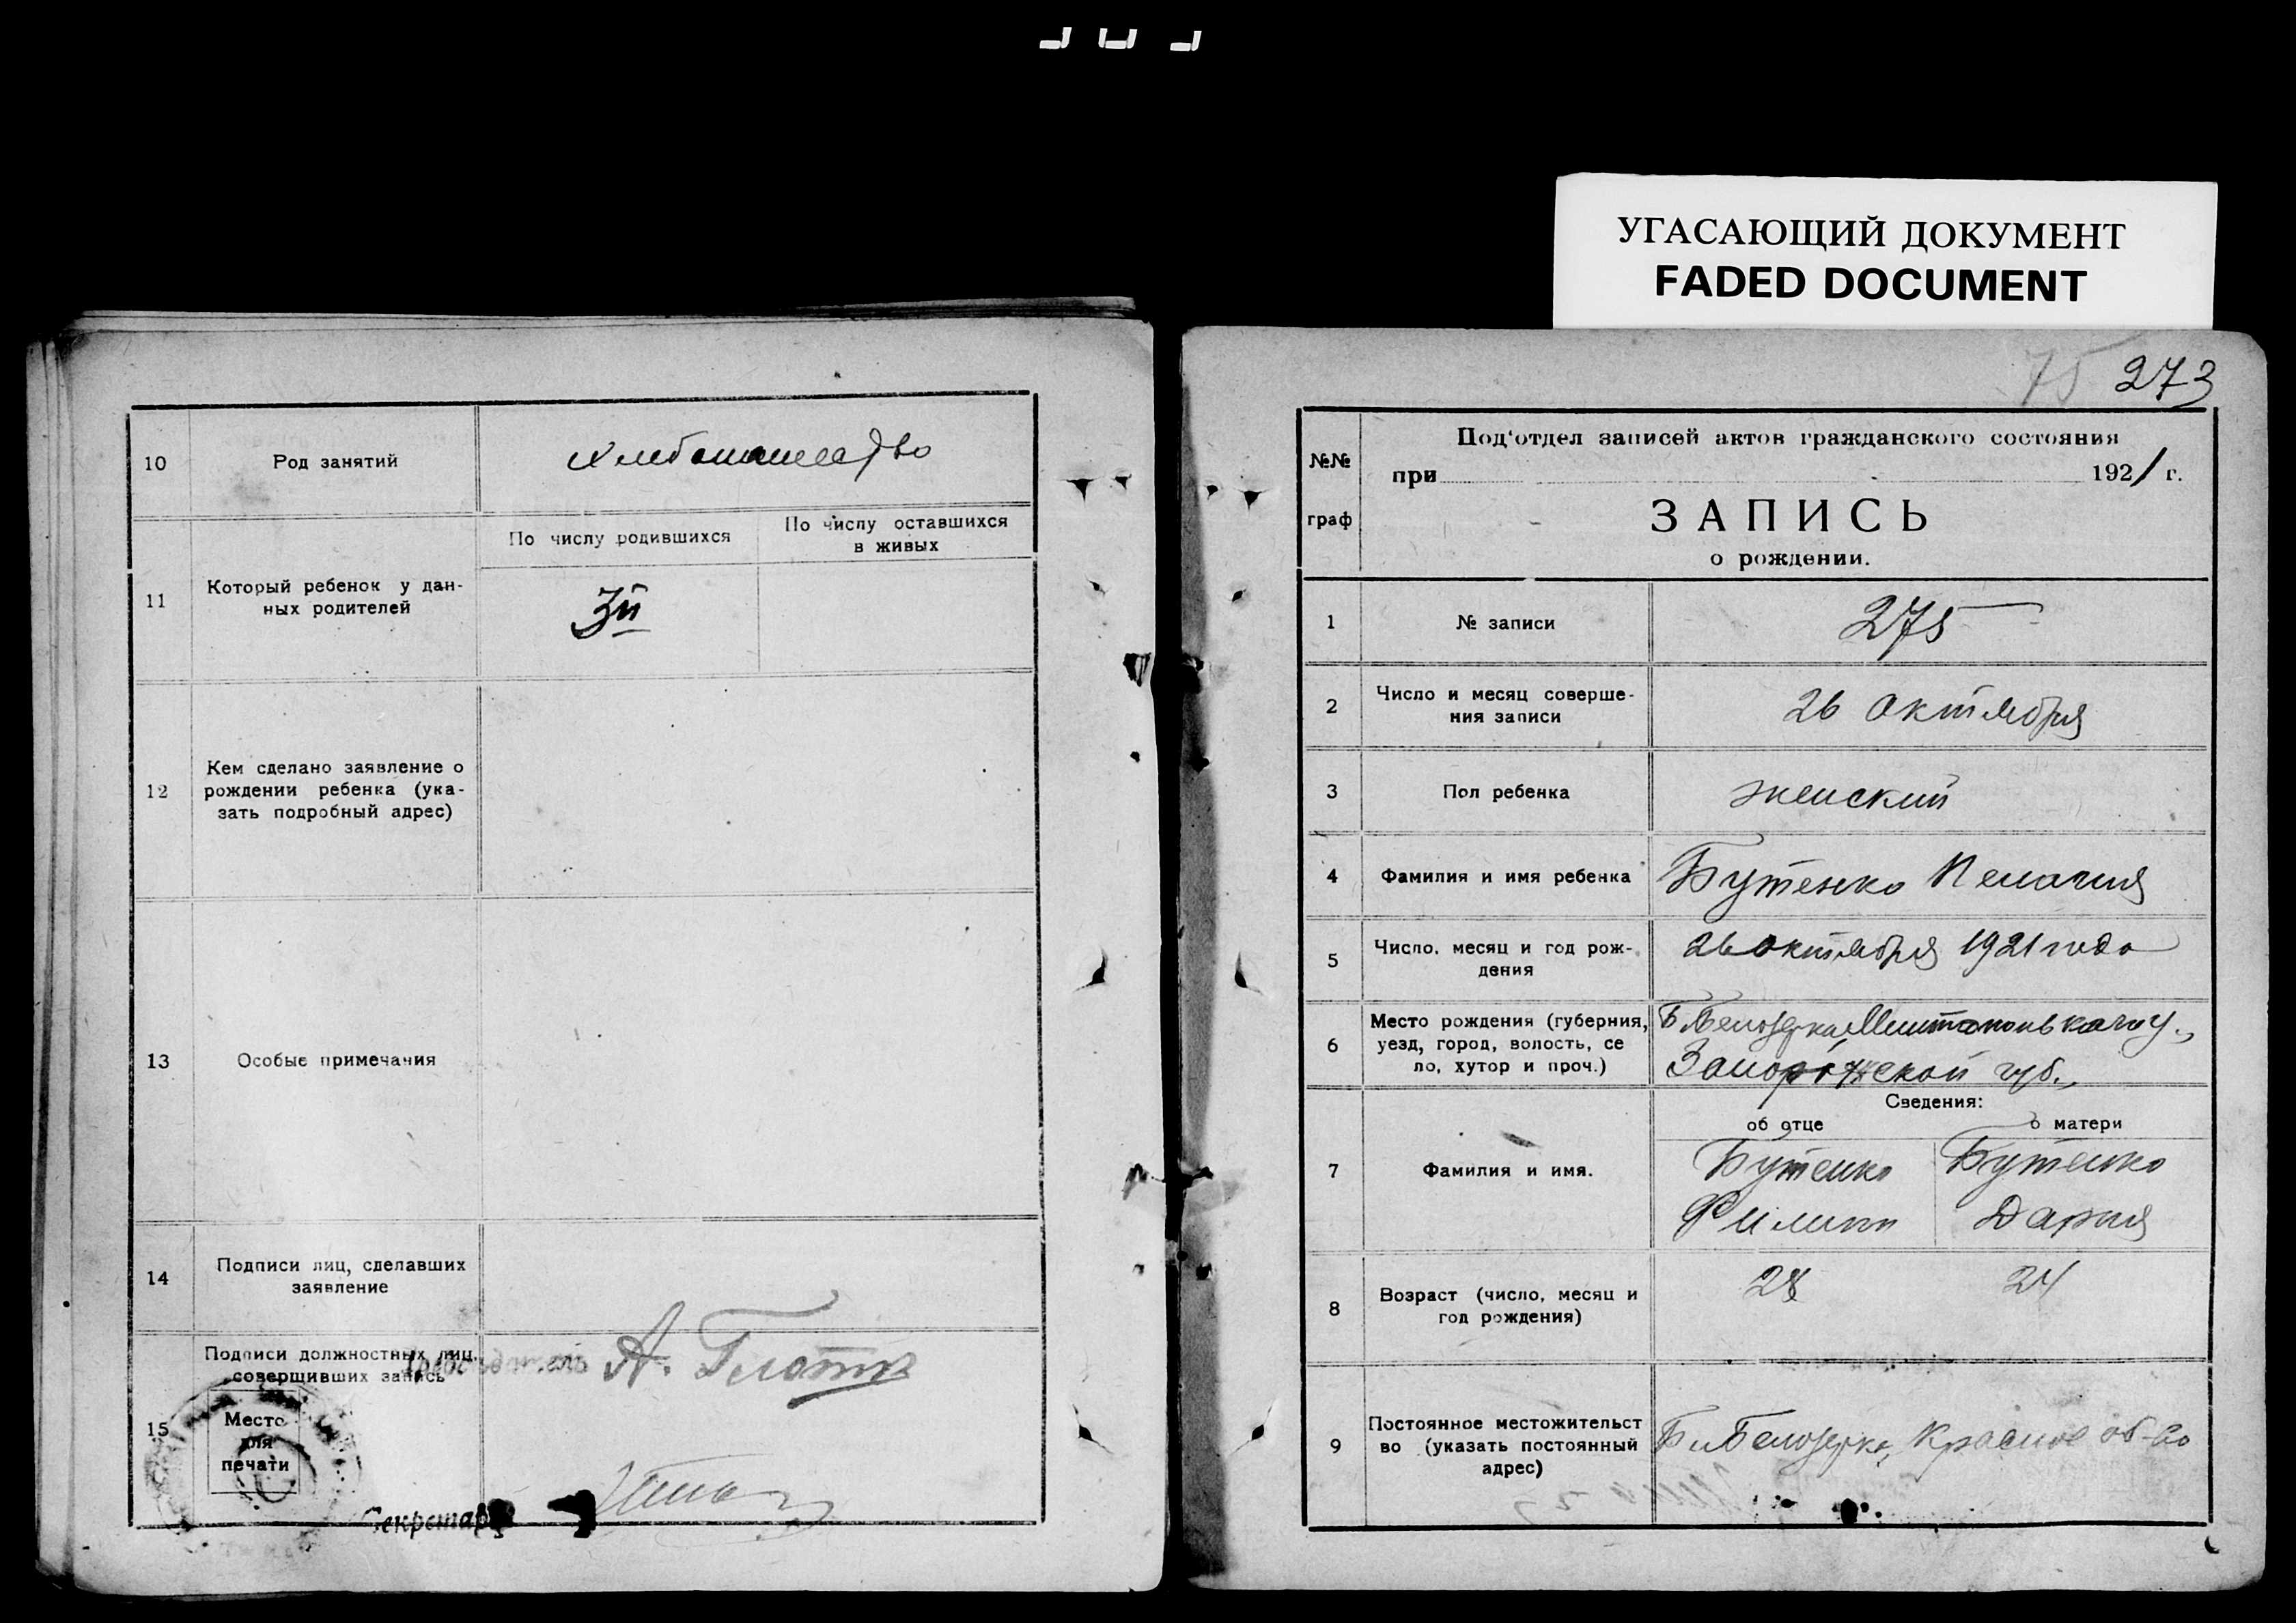 УГАСАЮЩИЙ ДОКУМЕНТ
FADED DOCUMENT
10
Род занятий
11
Который ребенок у дан-
ных родителей
По числу родившихся
По числу оставшихся
в живых
3й
12
Кем сделано заявление о
рождении ребенка (ука-
зать подробный адрес)
13
Особые примечания
14
Подписи лиц, сделавших
заявление
15
Подписи должностных лиц,
совершивших запись
Место
для
печати
А.
Секретарь
75 273
№№
граф
Под'отдел записей актов гражданского состояния
при 1921 г.
ЗАПИСЬ
о рождении.
1
№ записи
275
2
Число и месяц соверше-
ния записи
26 Октября
3
Пол ребенка
женский
4
Фамилия и имя ребенка
Бутенко Пелагия
5
Число, месяц и год рож-
дения
26 октября 1921 года
6
Место рождения (губерния,
уезд, город, волость, се
ло, хутор и проч.)
Б Белозерка
Запорожской губ.,
Сведения:
об отце
о матери
7
Фамилия и имя.
Бутенко
Филипп
Бутенко
Дария
8
Возраст (число, месяц и
год рождения)
28
24
9
Постоянное местожительст
во (указать постоянный
адрес)
Белозерка, Красное об-во